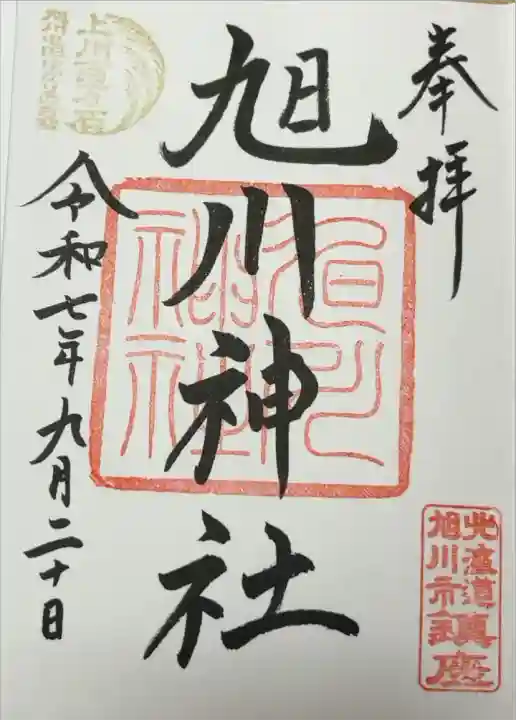 奉拝
旭川神社
旭川
神社
北海道
旭川市鎮座
令和七年九月二十日